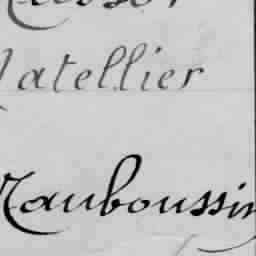 atellier
Mauboussin